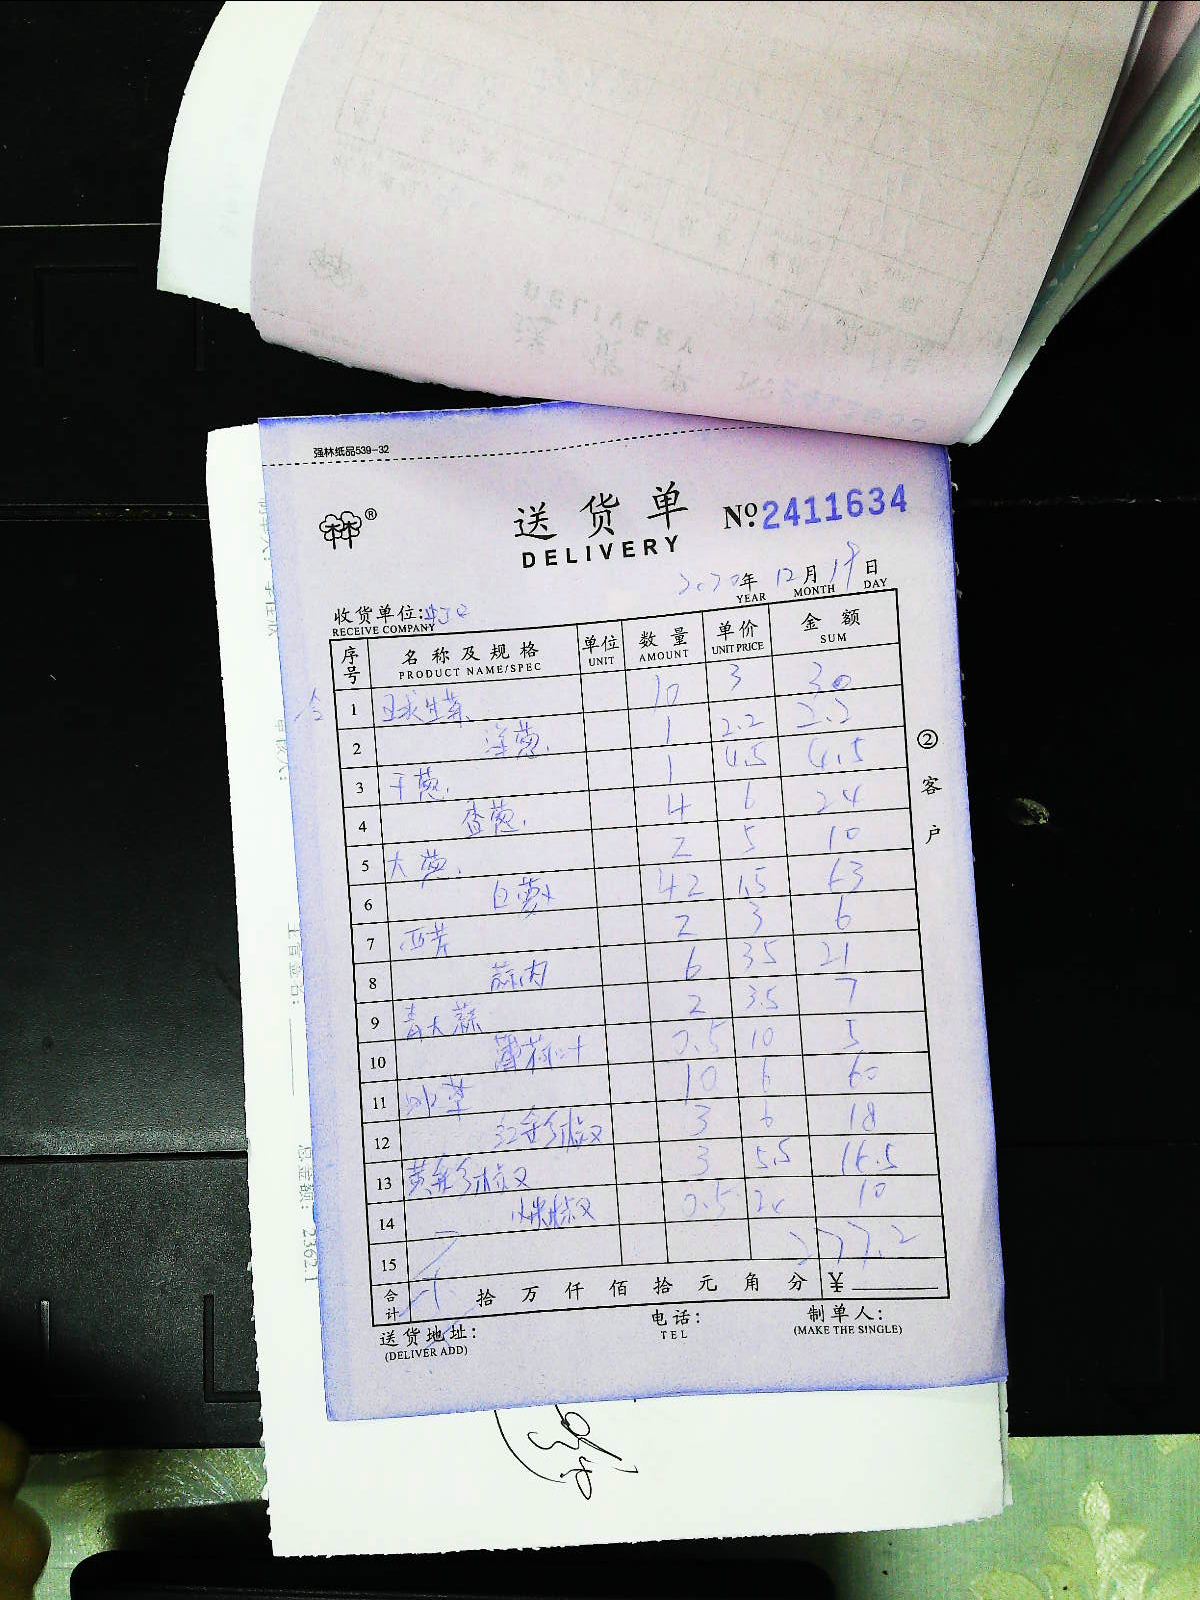 强林纸品539-32
送货单 №2411634
DELIVERY
2020年 12月 19日
YEAR MONTH DAY
收货单位:
RECEIVE COMPANY
序号 名称及规格 单位 数量 单价 金额
PRODUCT NAME/SPEC UNIT AMOUNT UNIT PRICE SUM
1 球生菜 10 3 30
2 洋葱. 1 2.2 2.2
3 干葱. 1 4.5 4.5
4 香葱. 4 6 24
5 大葱. 2 5 10
6 白萝 42 1.5 63
7 西芹 2 3 6
8 蒜肉 6 3.5 21
9 青大蒜 2 3.5 7
10 薄荷叶 0.5 10 5
11 10 6 60
12 红全多椒 3 6 18
13 黄全多椒 3 5.5 16.5
14 米椒 0.5 20 10
15 277.2
合计 拾 万 仟 佰 拾 元 角 分 ¥
送货地址: 电话: 制单人:
(DELIVER ADD) TEL (MAKE THE SINGLE)
②客户
总金额: 2362.1